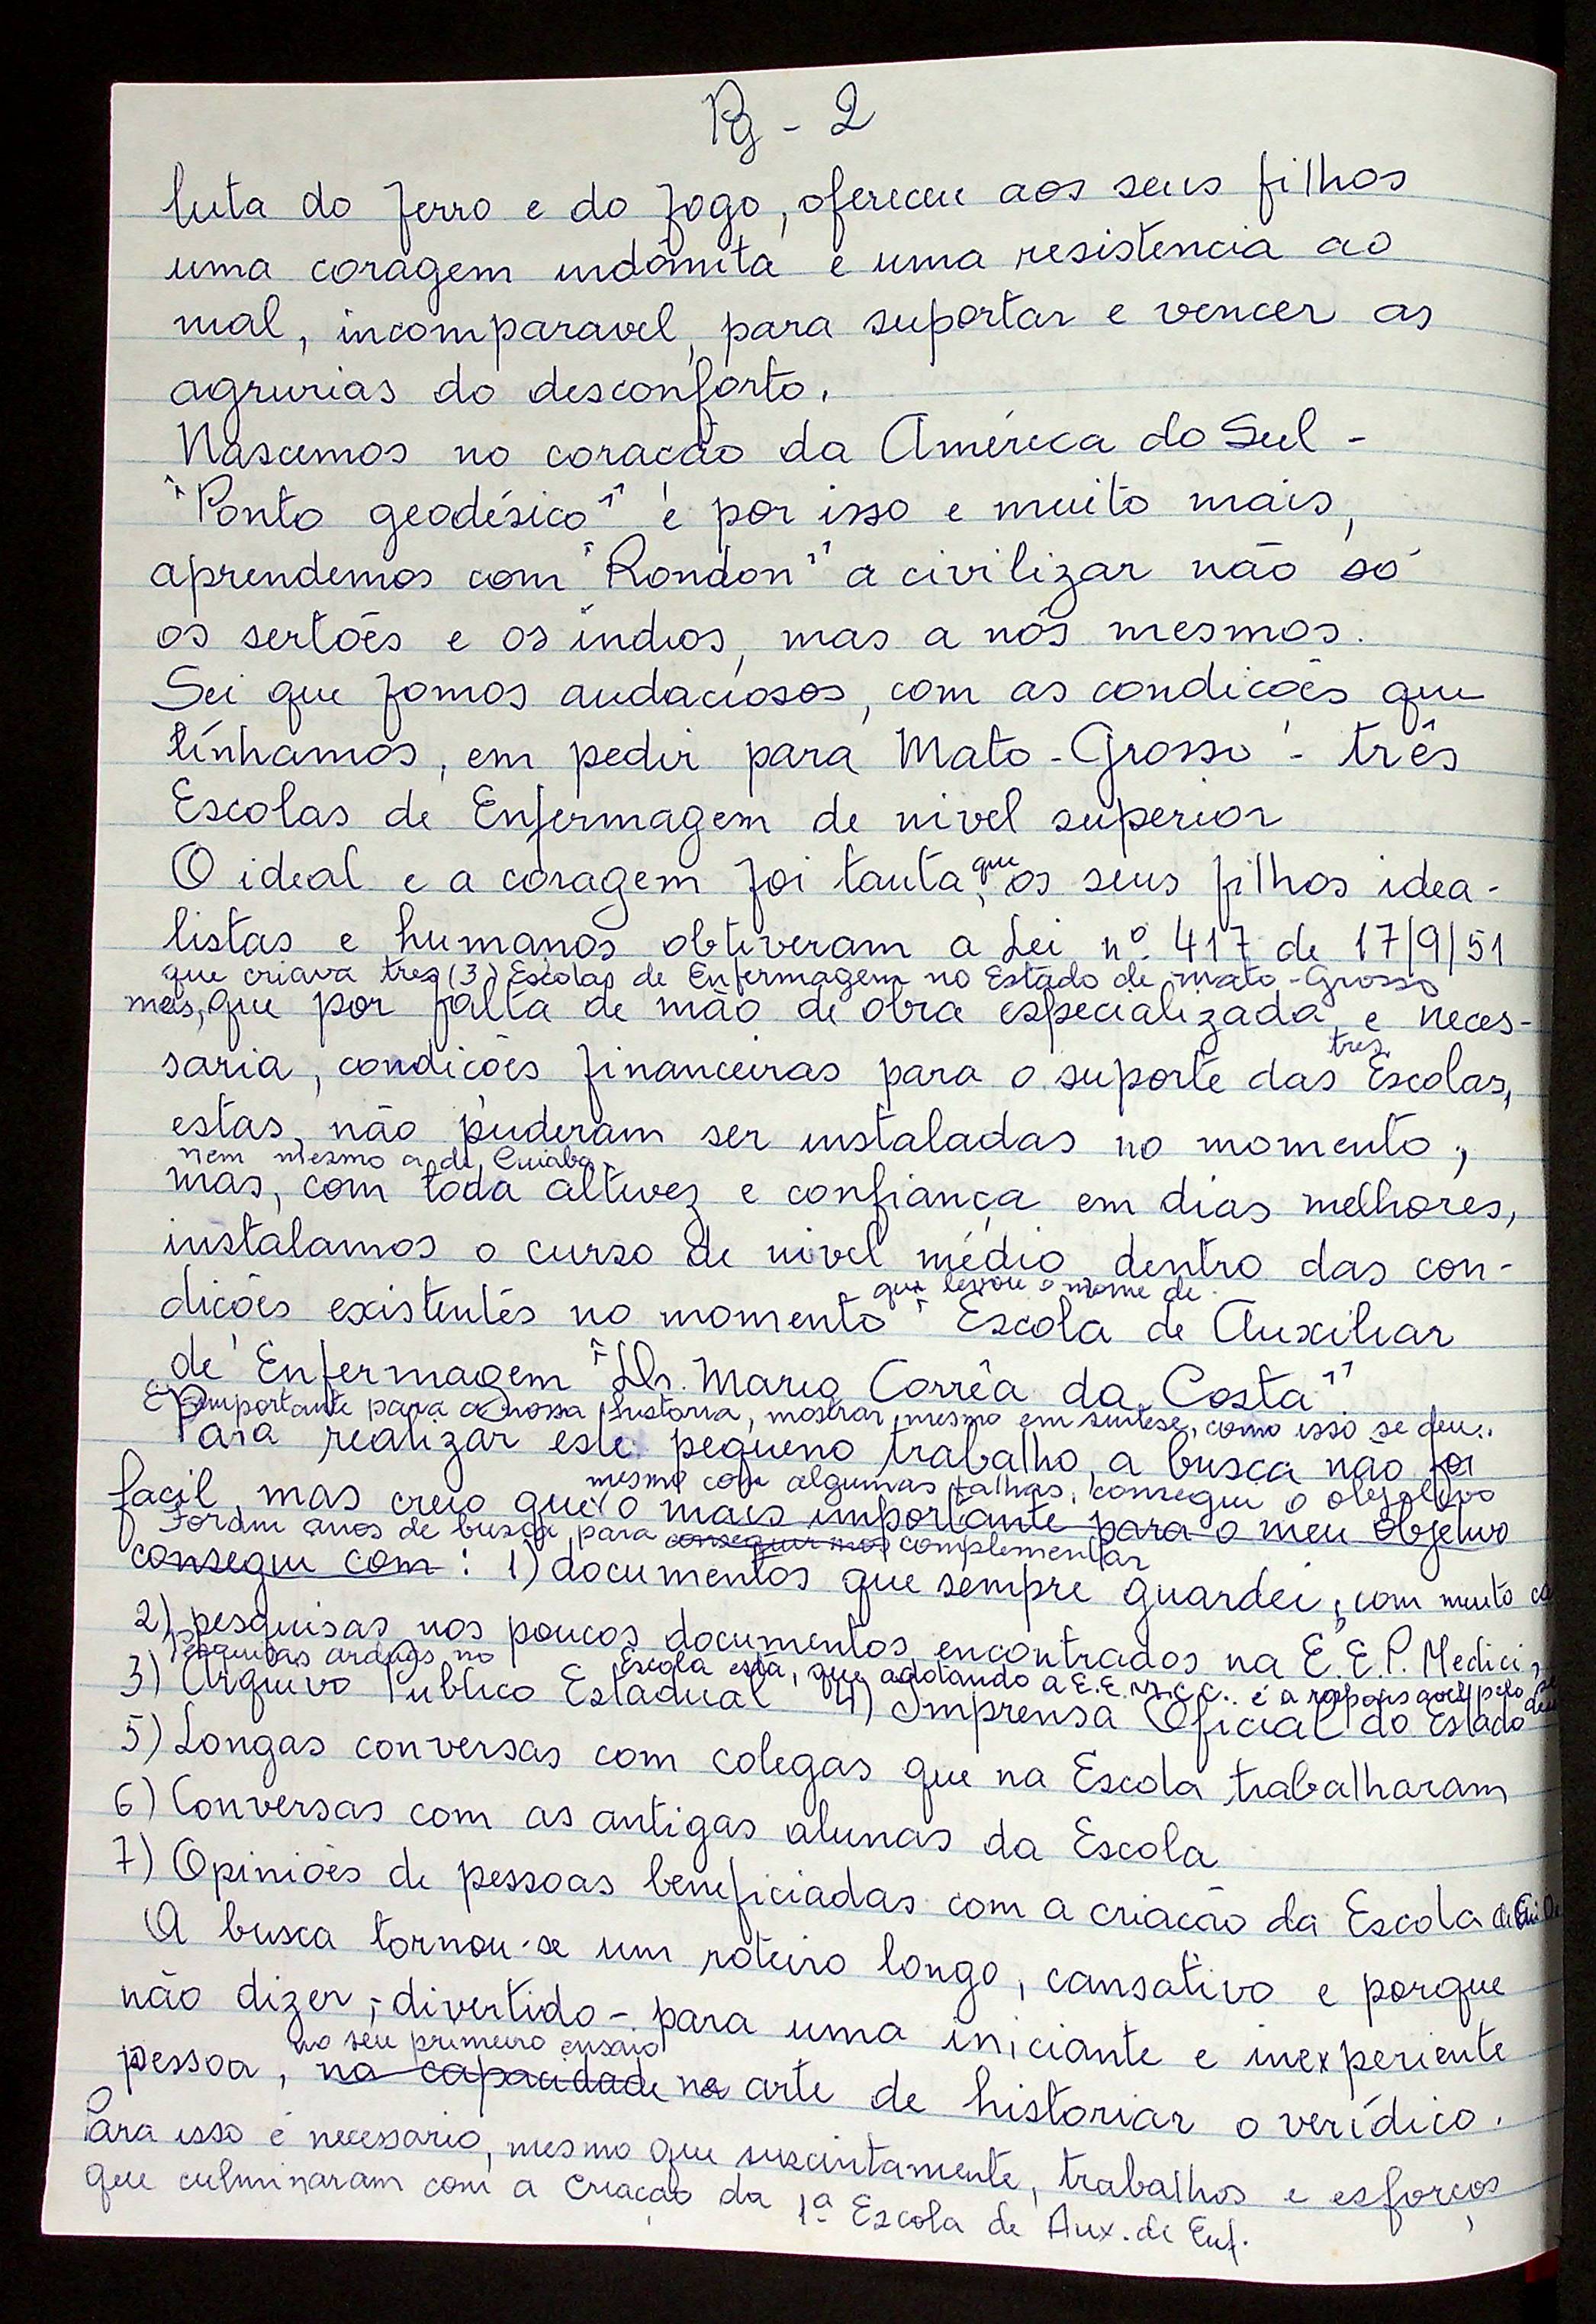 Pg - 2
luta do ferro e do fogo, ofereceu aos seus filhos
uma coragem indômita e uma resistencia ao
mal, incomparavel, para suportar e vencer as
agrurias do desconforto.
Nascemos no coracão da América do Sul -
"Ponto geodésico" é por isso e muito mais,
aprendemos com "Rondon" a civilizar não só
os sertões e os índios, mas a nós mesmos.
Sei que fomos audaciosos, com as condicões que
tínhamos, em pedir para Mato-Grosso - três
Escolas de Enfermagem de nivel superior
O ideal e a coragem foi tanta, que os seus filhos idea-
listas e humanos obtiveram a Lei nº 417 de 17/9/51
que criava tres (3) Escolas de Enfermagem no Estado de Mato-Grosso
mas, que por falta de mão de obra especializada e neces-
saria, condicões financeiras para o suporte das tres Escolas,
estas, não puderam ser instaladas no momento,
nem mesmo a de Cuiaba.
mas, com toda altivez e confiança em dias melhores,
instalamos o curso de nivel médio dentro das con-
dicões existentes no momento que levou o nome de "Escola de Auxiliar
de Enfermagem "Dr. Mario Corrêa da Costa"
É importante para a nossa historia, mostrar, mesmo em sintese, como isso se deu..
Para realizar este pequeno trabalho, a busca não foi
mesmo com algumas falhas, consegui o objetivo
facil, mas creio que o mais importante para o meu objetivo
Foram anos de busca para conseguir mos complementar
consegui com: 1) documentos que sempre guardei, com muito
2) pesquisas nos poucos documentos encontrados na E.E.P. Medici,
pesquisas arduas no Escola esta, que adotando a E.E. M.C.C.. é a responsavel pelo
3) Arquivo Publico Estadual 4) Imprensa Oficial do Estado
5) Longas conversas com colegas que na Escola trabalharam
6) Conversas com as antigas alunas da Escola
7) Opiniões de pessoas beneficiadas com a criacão da Escola
A busca tornou-se um roteiro longo, cansativo e porque
não dizer, - divertido - para uma iniciante e inexperiente
no seu primeiro ensaio
pessoa, na capacidade na arte de historiar o verídico.
Para isso é necessario, mesmo que suscintamente, trabalhos e esforços
que culminaram com a criação da 1ª Escola de Aux. de Enf.